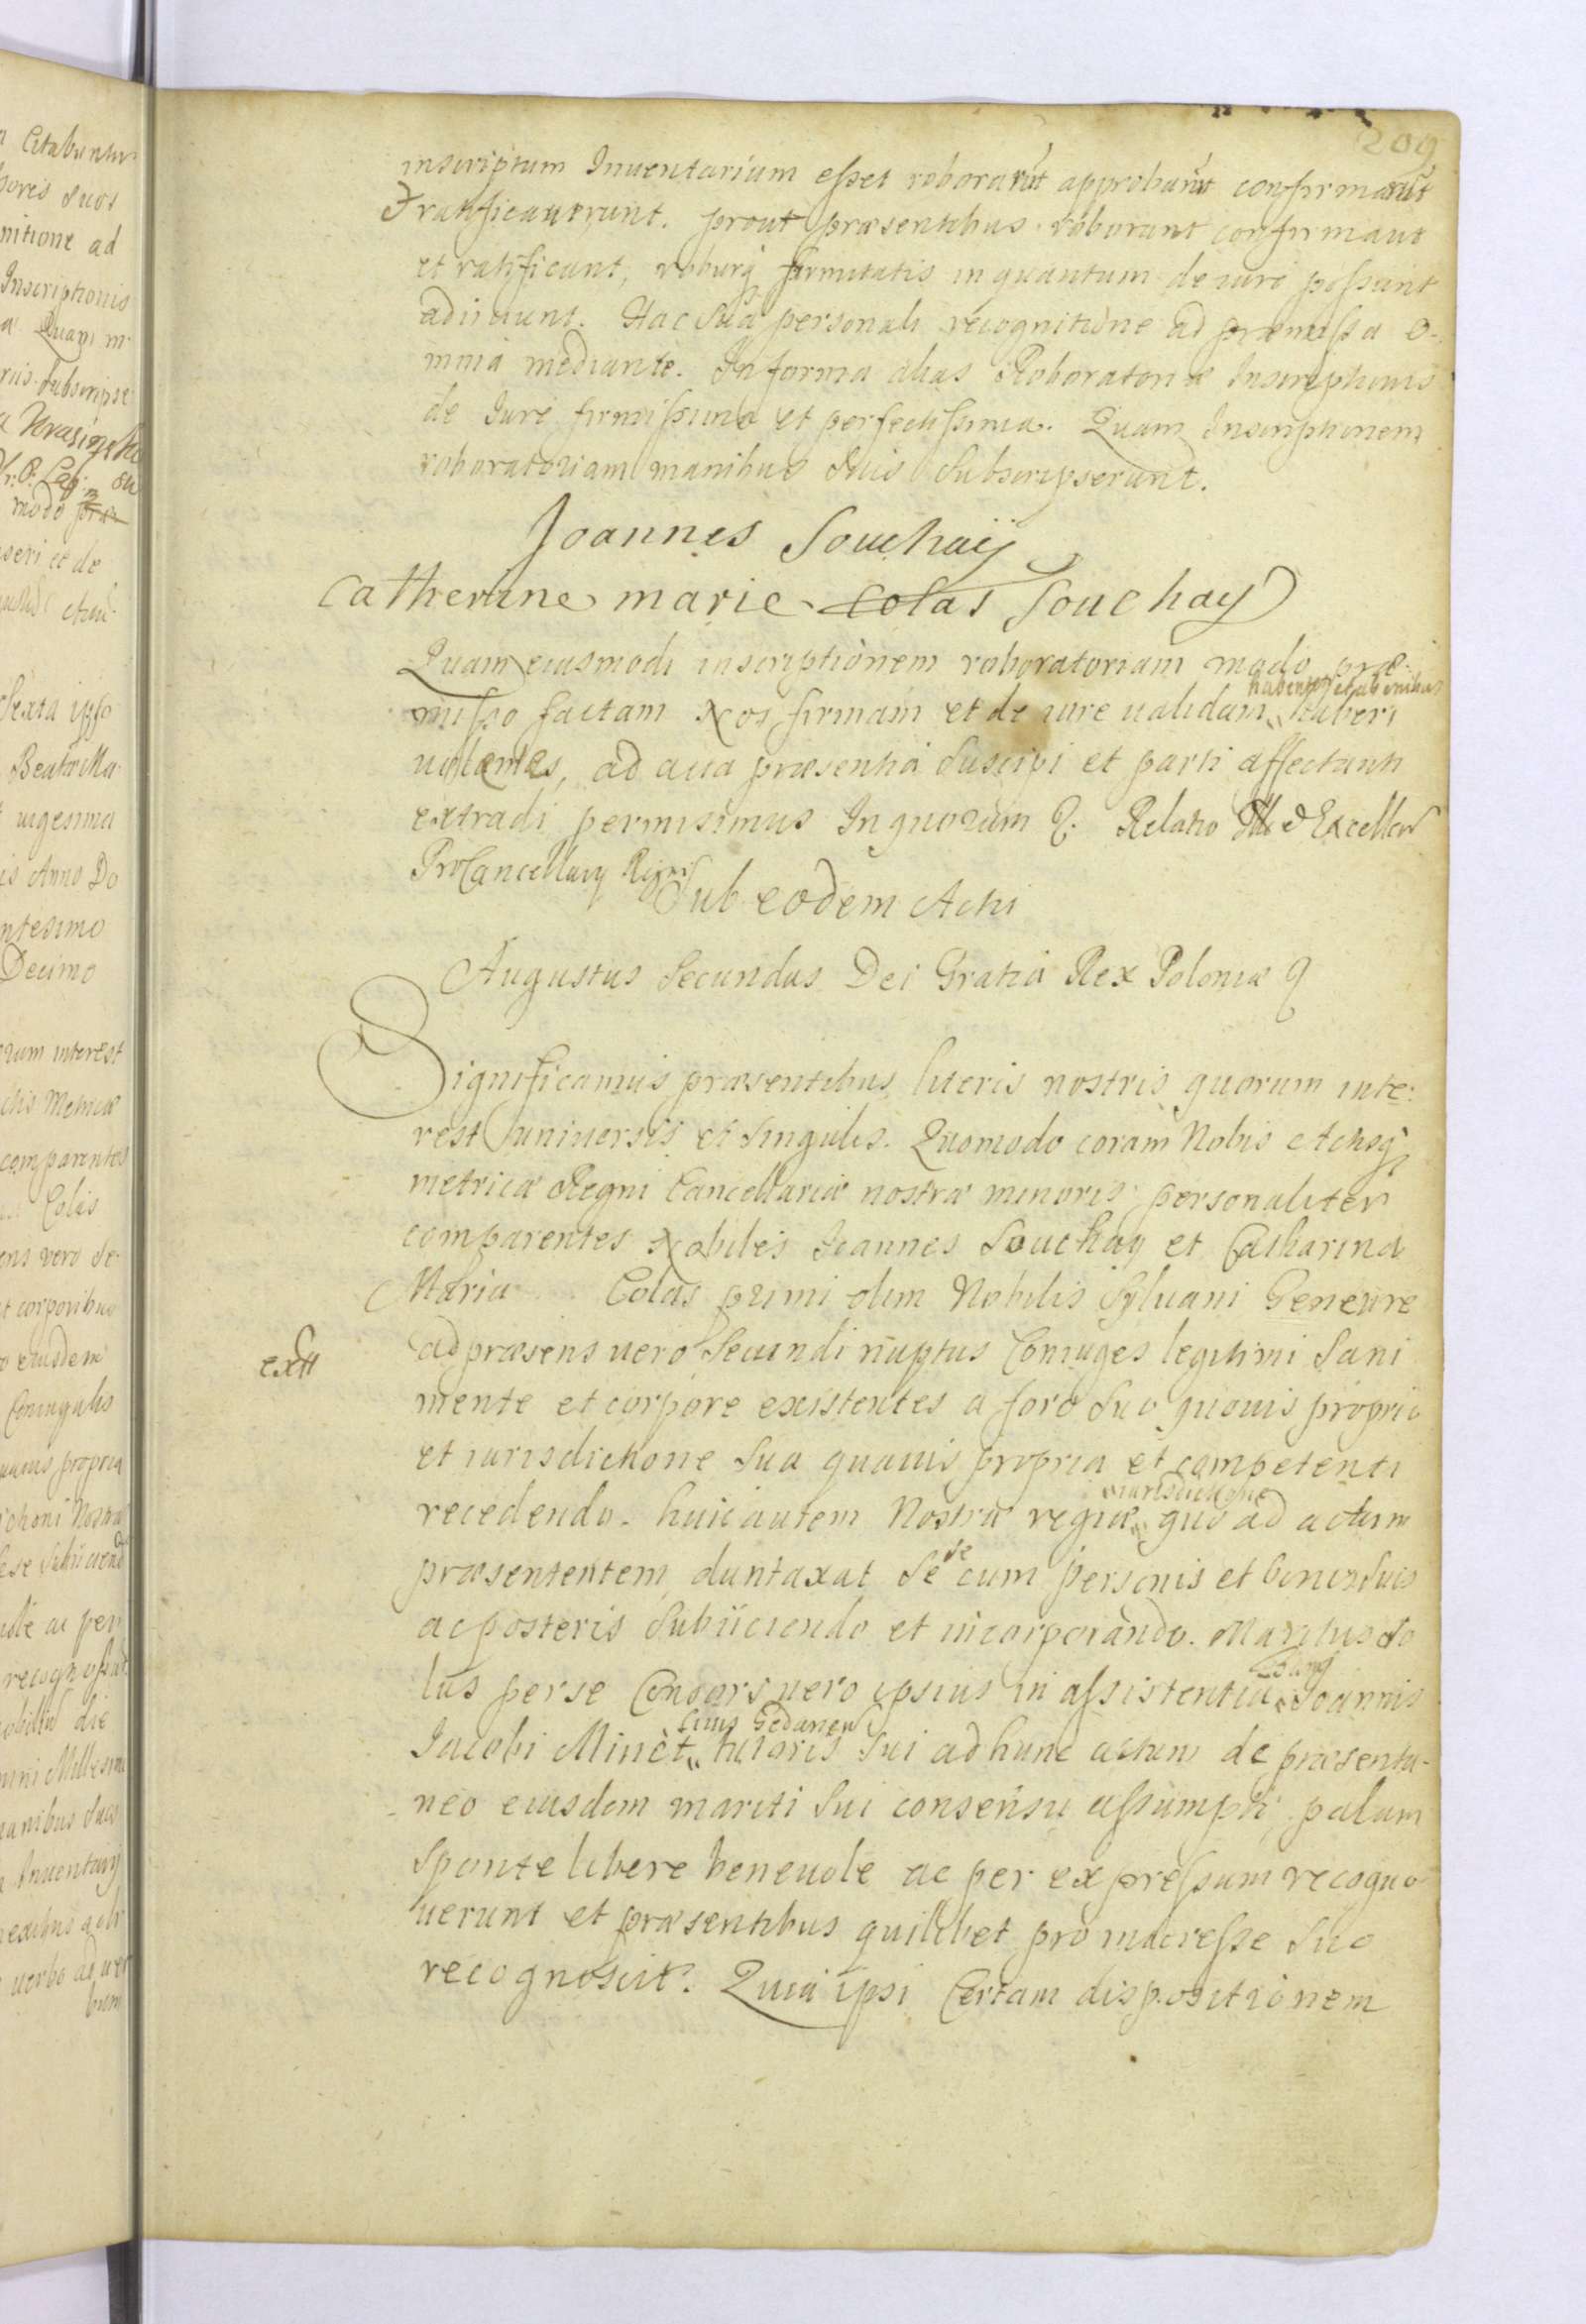 209
inscriptum Inuentarium esset roborarut approbarut confirmarut
& ratificauerunt. prout præsentibus roborant confirmant
et ratificant, roburq firmitatis in quantum de iure possunt
adiiciunt. Hac sua personali recognitione ad præmissa o-
mnia mediante. In forma alias Roboratoriæ Inscriptionis
de Iure firmissima et perfectissima. Quam Inscriptionem
roboratoriam manibus suis subscripserunt.
Joannes Souchaÿ
Catherine marie Colas Souchay
Quam eiusmodi inscriptionem roboratoriam modo præ-
misso factam Nos firmam et de iure ualidam habentes et ab omnibus haberi
uolentes, ad acta præsentia suscipi et parti affectanti
extradi permisimus In quorum &. Relatio Ill & Excellen
ProCancellary Regni
Sub eodem Actu
Augustus Secundus Dei Gratia Rex Poloniæ &
Significamus præsentibus literis nostris quorum inte-
rest uniuersis et singulis. Quomodo coram Nobis Actisq
metricæ Regni Cancellariæ nostræ minoris personaliter
comparentes Nobiles Ioannes Souchay et Catharina
Maria Colas primi olim Nobilis Syluani Geneure
extt
ad præsens uero secundi nuptus Coniuges legitimi sani
mente et corpore existentes a foro suo quouis proprio
et iurisdictione sua quauis propria et competenti
recedendo. huic autem Nostræ regiæ iurisdictioni quo ad actum
præsententem duntaxat sese cum personis et bonis suis
ac posteris subiiciendo et incorporando. Maritus so
lus per se Consors uero ipsius in assistentia Joannis
Jacobi Minèt Ciuis Gedanen tutoris sui ad hunc actum de præsenta-
neo eiusdem mariti sui consensu assumpti, palam
sponte libere beneuole ac per expressum recogno
uerunt et præsentibus quilibet pro interesse suo
recognoscit. Quia ipsi Certam dispositionem